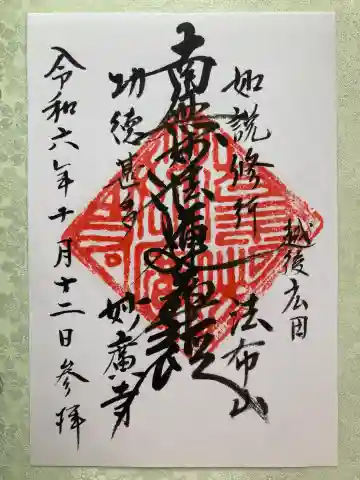 越後広田
法布山
如説修行
南無妙法蓮華経
功徳甚多
妙廣寺
令和六年十月十二日参拝